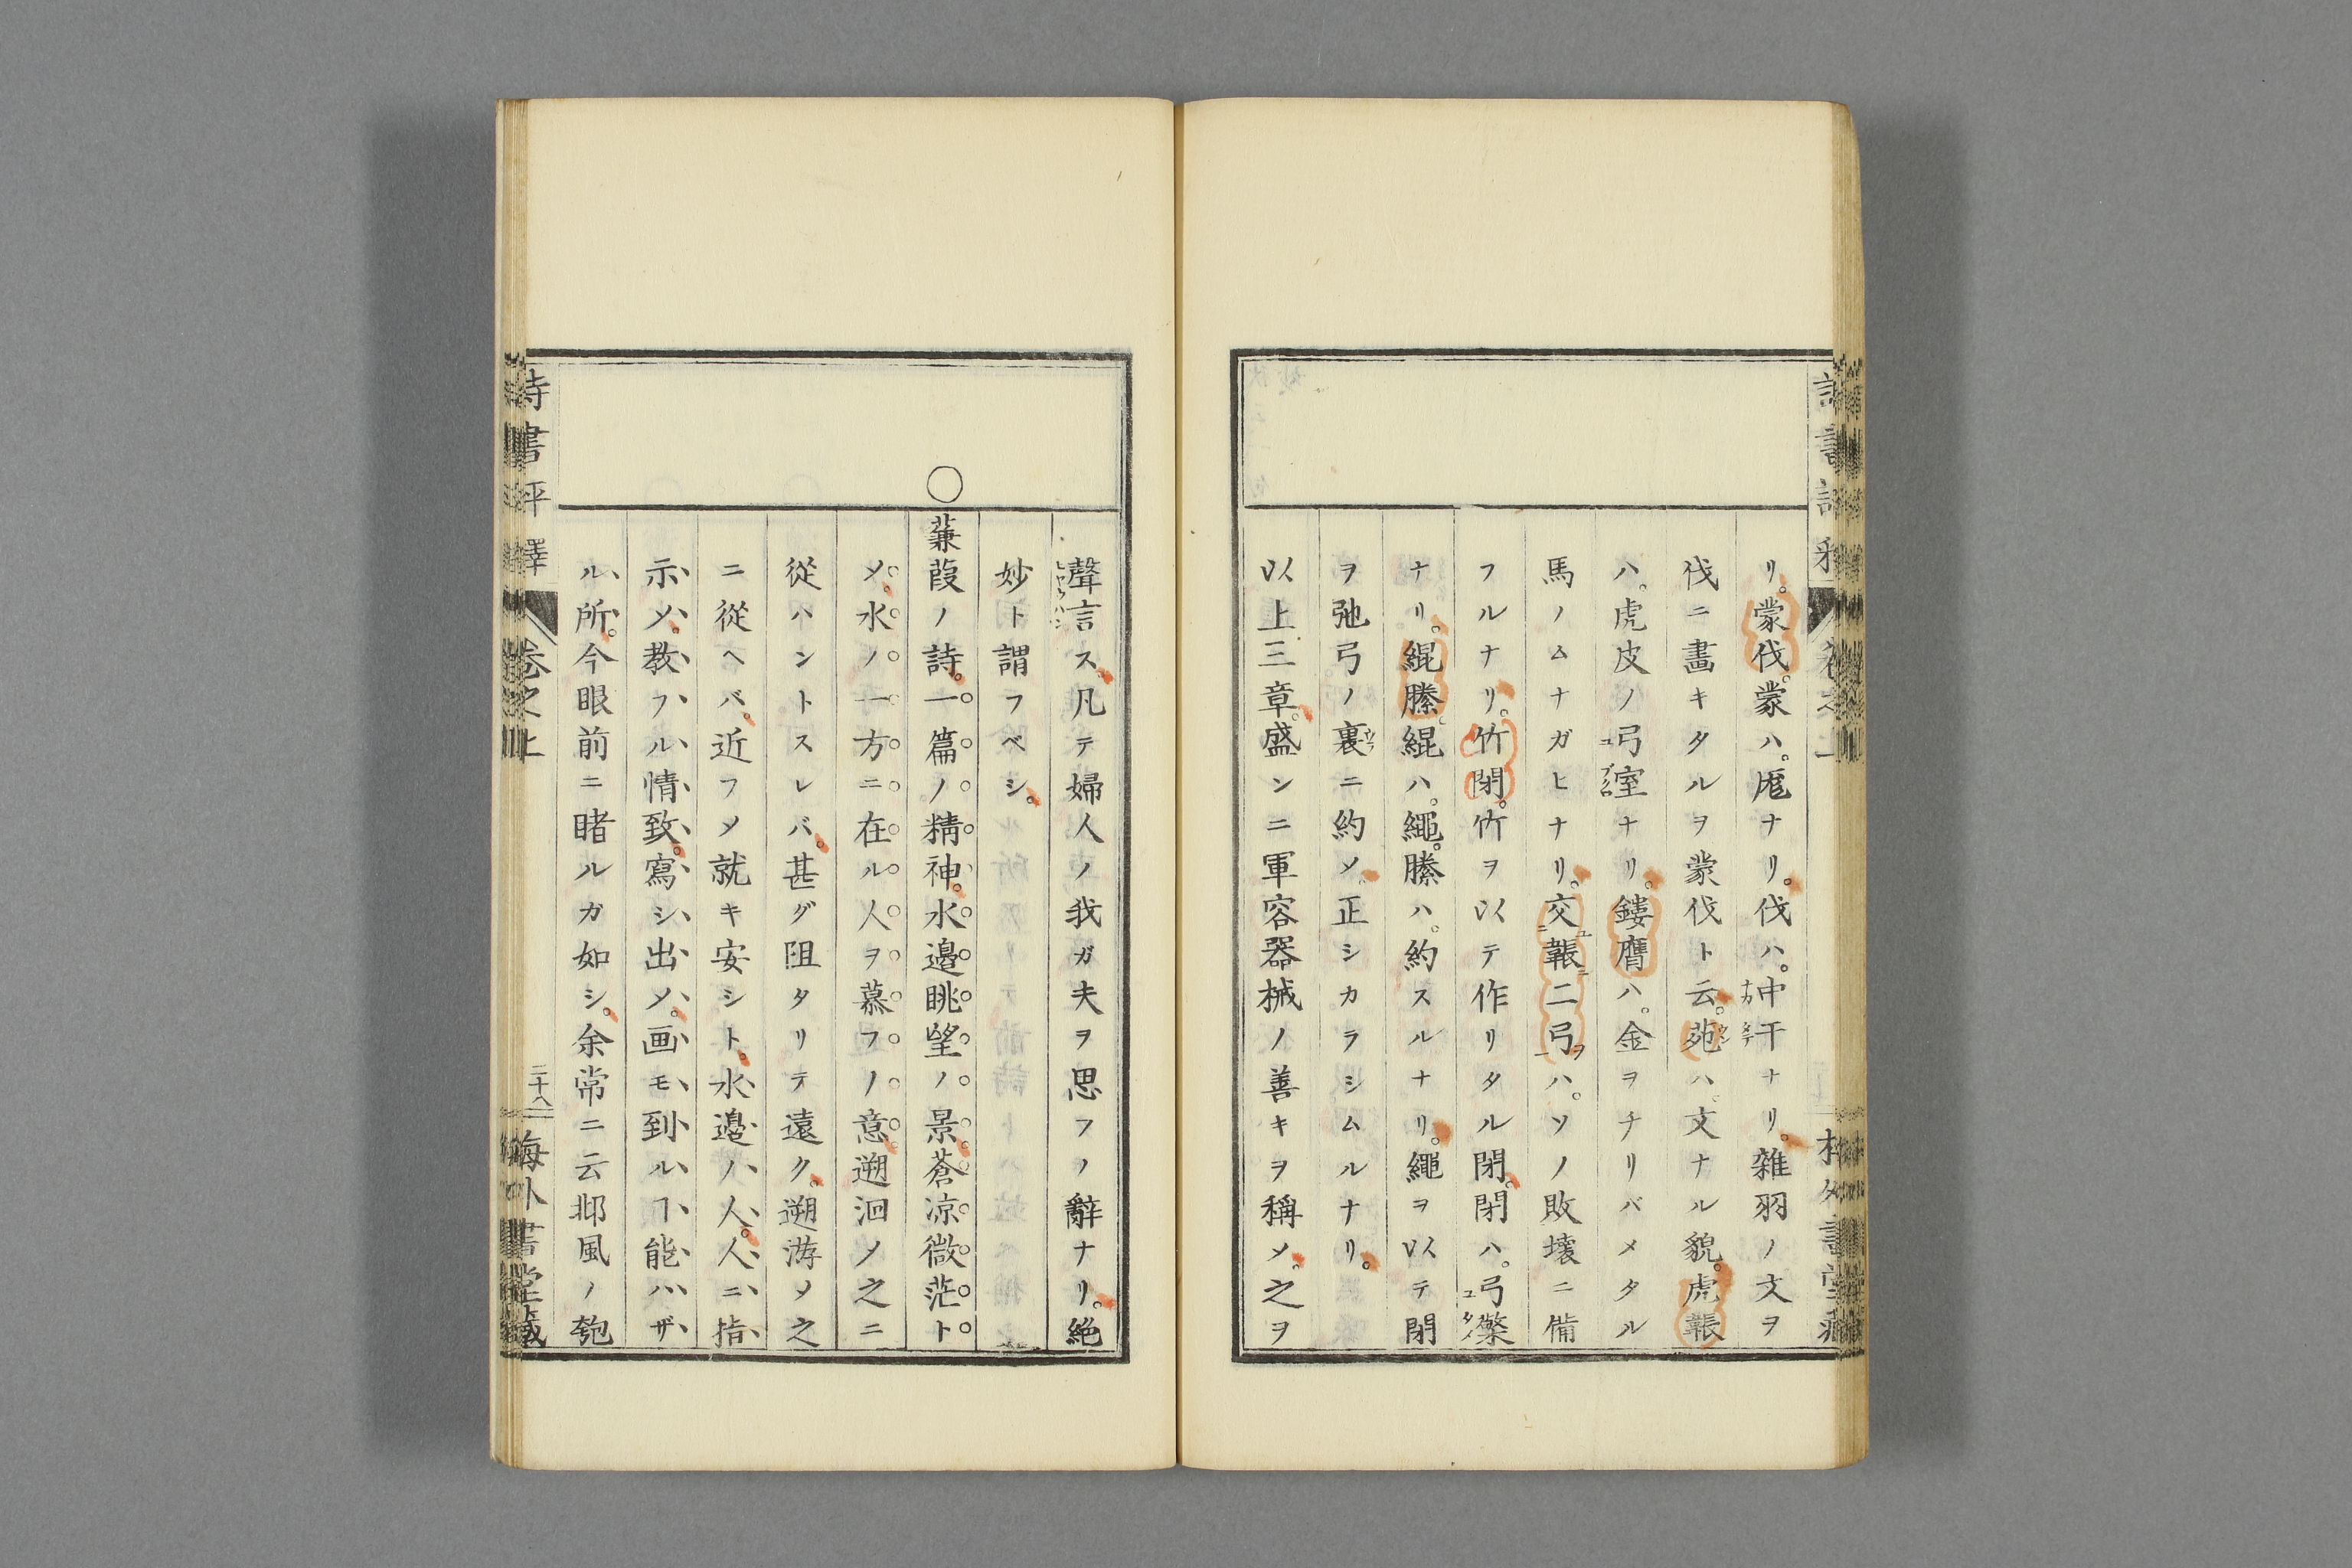 リ。蒙伐。蒙ハ。厖ナリ。伐ハ。中干ナリ。雜羽ノ文ヲ
伐ニ畫キタルヲ蒙伐ト云。苑ハ。文ナル貌。虎韔
ハ。虎皮ノ弓室ナリ。鏤膺ハ。金ヲチリバメタル
馬ノムナガヒナリ。交韔二弓ハ。ソノ敗壞ニ備
フルナリ。竹閉。竹ヲ以テ作リタル閉。閉ハ。弓檠
ナリ。緄縢。緄ハ。繩。縢ハ。約スルナリ。繩ヲ以テ閉
ヲ弛弓ノ裏ニ約メ。正シカラシムルナリ。
以上三章。盛ンニ軍容器械ノ善キヲ稱メ。之ヲ
聲言ス。凡テ婦人ノ我ガ夫ヲ思フノ辭ナリ。絶
妙ト謂フベシ。
○蒹葭ノ詩。一篇ノ精神。水邊眺望ノ景。蒼凉微茫ト
メ。水ノ一方ニ在ル人ヲ慕フノ意。遡洄メ之ニ
從ハントスレバ。甚グ阻タリテ遠ク。遡游メ之
ニ從ヘバ。近フメ就キ安シト。水邊ノ人。人ニ指
示メ。教フル情致。寫シ出メ。画モ到ルヿ能ハザ
ル所。今眼前ニ睹ルガ如シ。余常ニ云邶風ノ匏
詩書評釋
卷之上
二十八
海外書堂藏